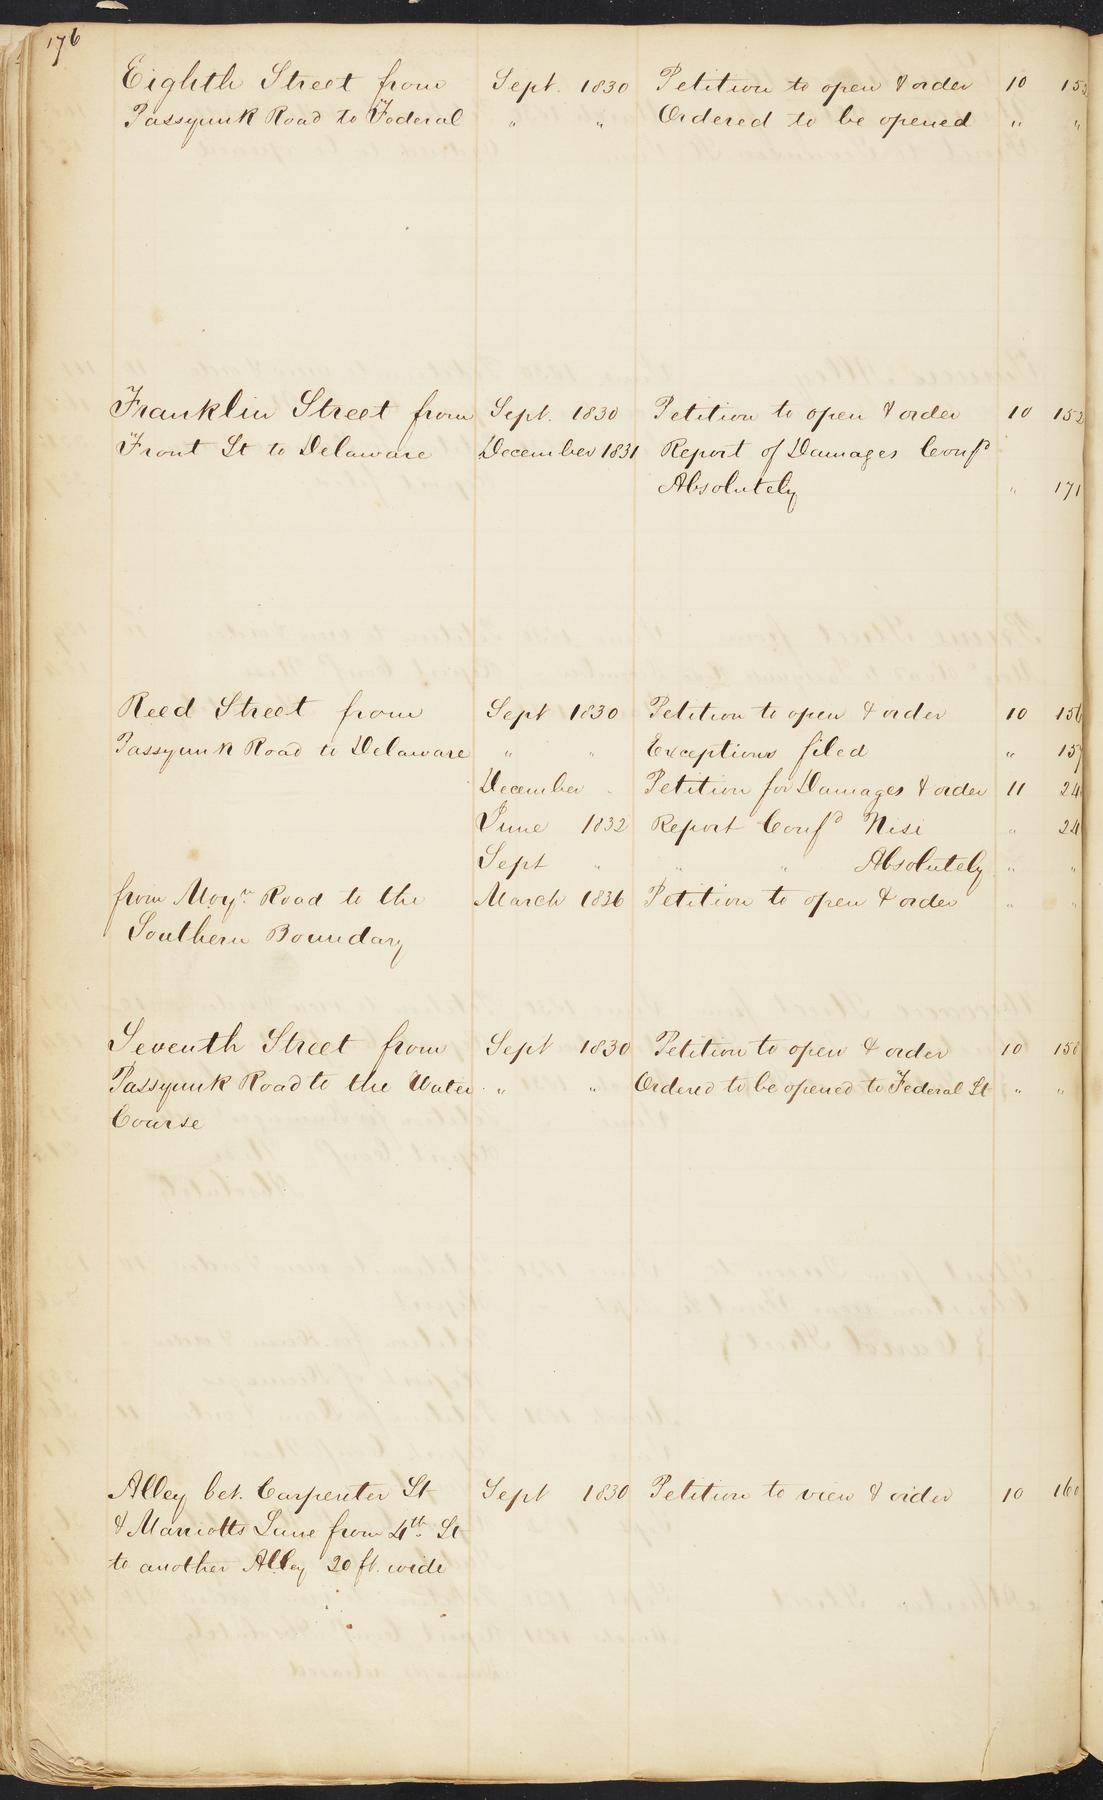 176
Eighth Street from Sept. 1830 Petition to open & order 10
Passyunk Road to Federal " " Ordered to be opened " "
Franklin Street from Sept. 1830 Petition to open & order 10 152
Front St to Delaware December 1831 Report of Damages Conf^d
Absolutely " 171
Reed Street from Sept 1830 Petition to open & order 10 156
Passyunk Road to Delaware " " Exceptions filed " 157
December " Petition for Damages & order 11 24
June 1832 Report Conf^d Nisi " 24
Sept " " " Absolutely " "
from Moy^r. Road to the March 1836 Petition to open & order " "
Southern Boundary
Seventh Street from Sept 1830 Petition to open & order 10 158
Passyunk Road to the Water " " Ordered to be opened to Federal St " "
Course
Alley bet. Carpenter St Sept 1830 Petition to view & order 10 160
& Marriotts Lane from 4^th. St
to another Alley 20 ft. wide